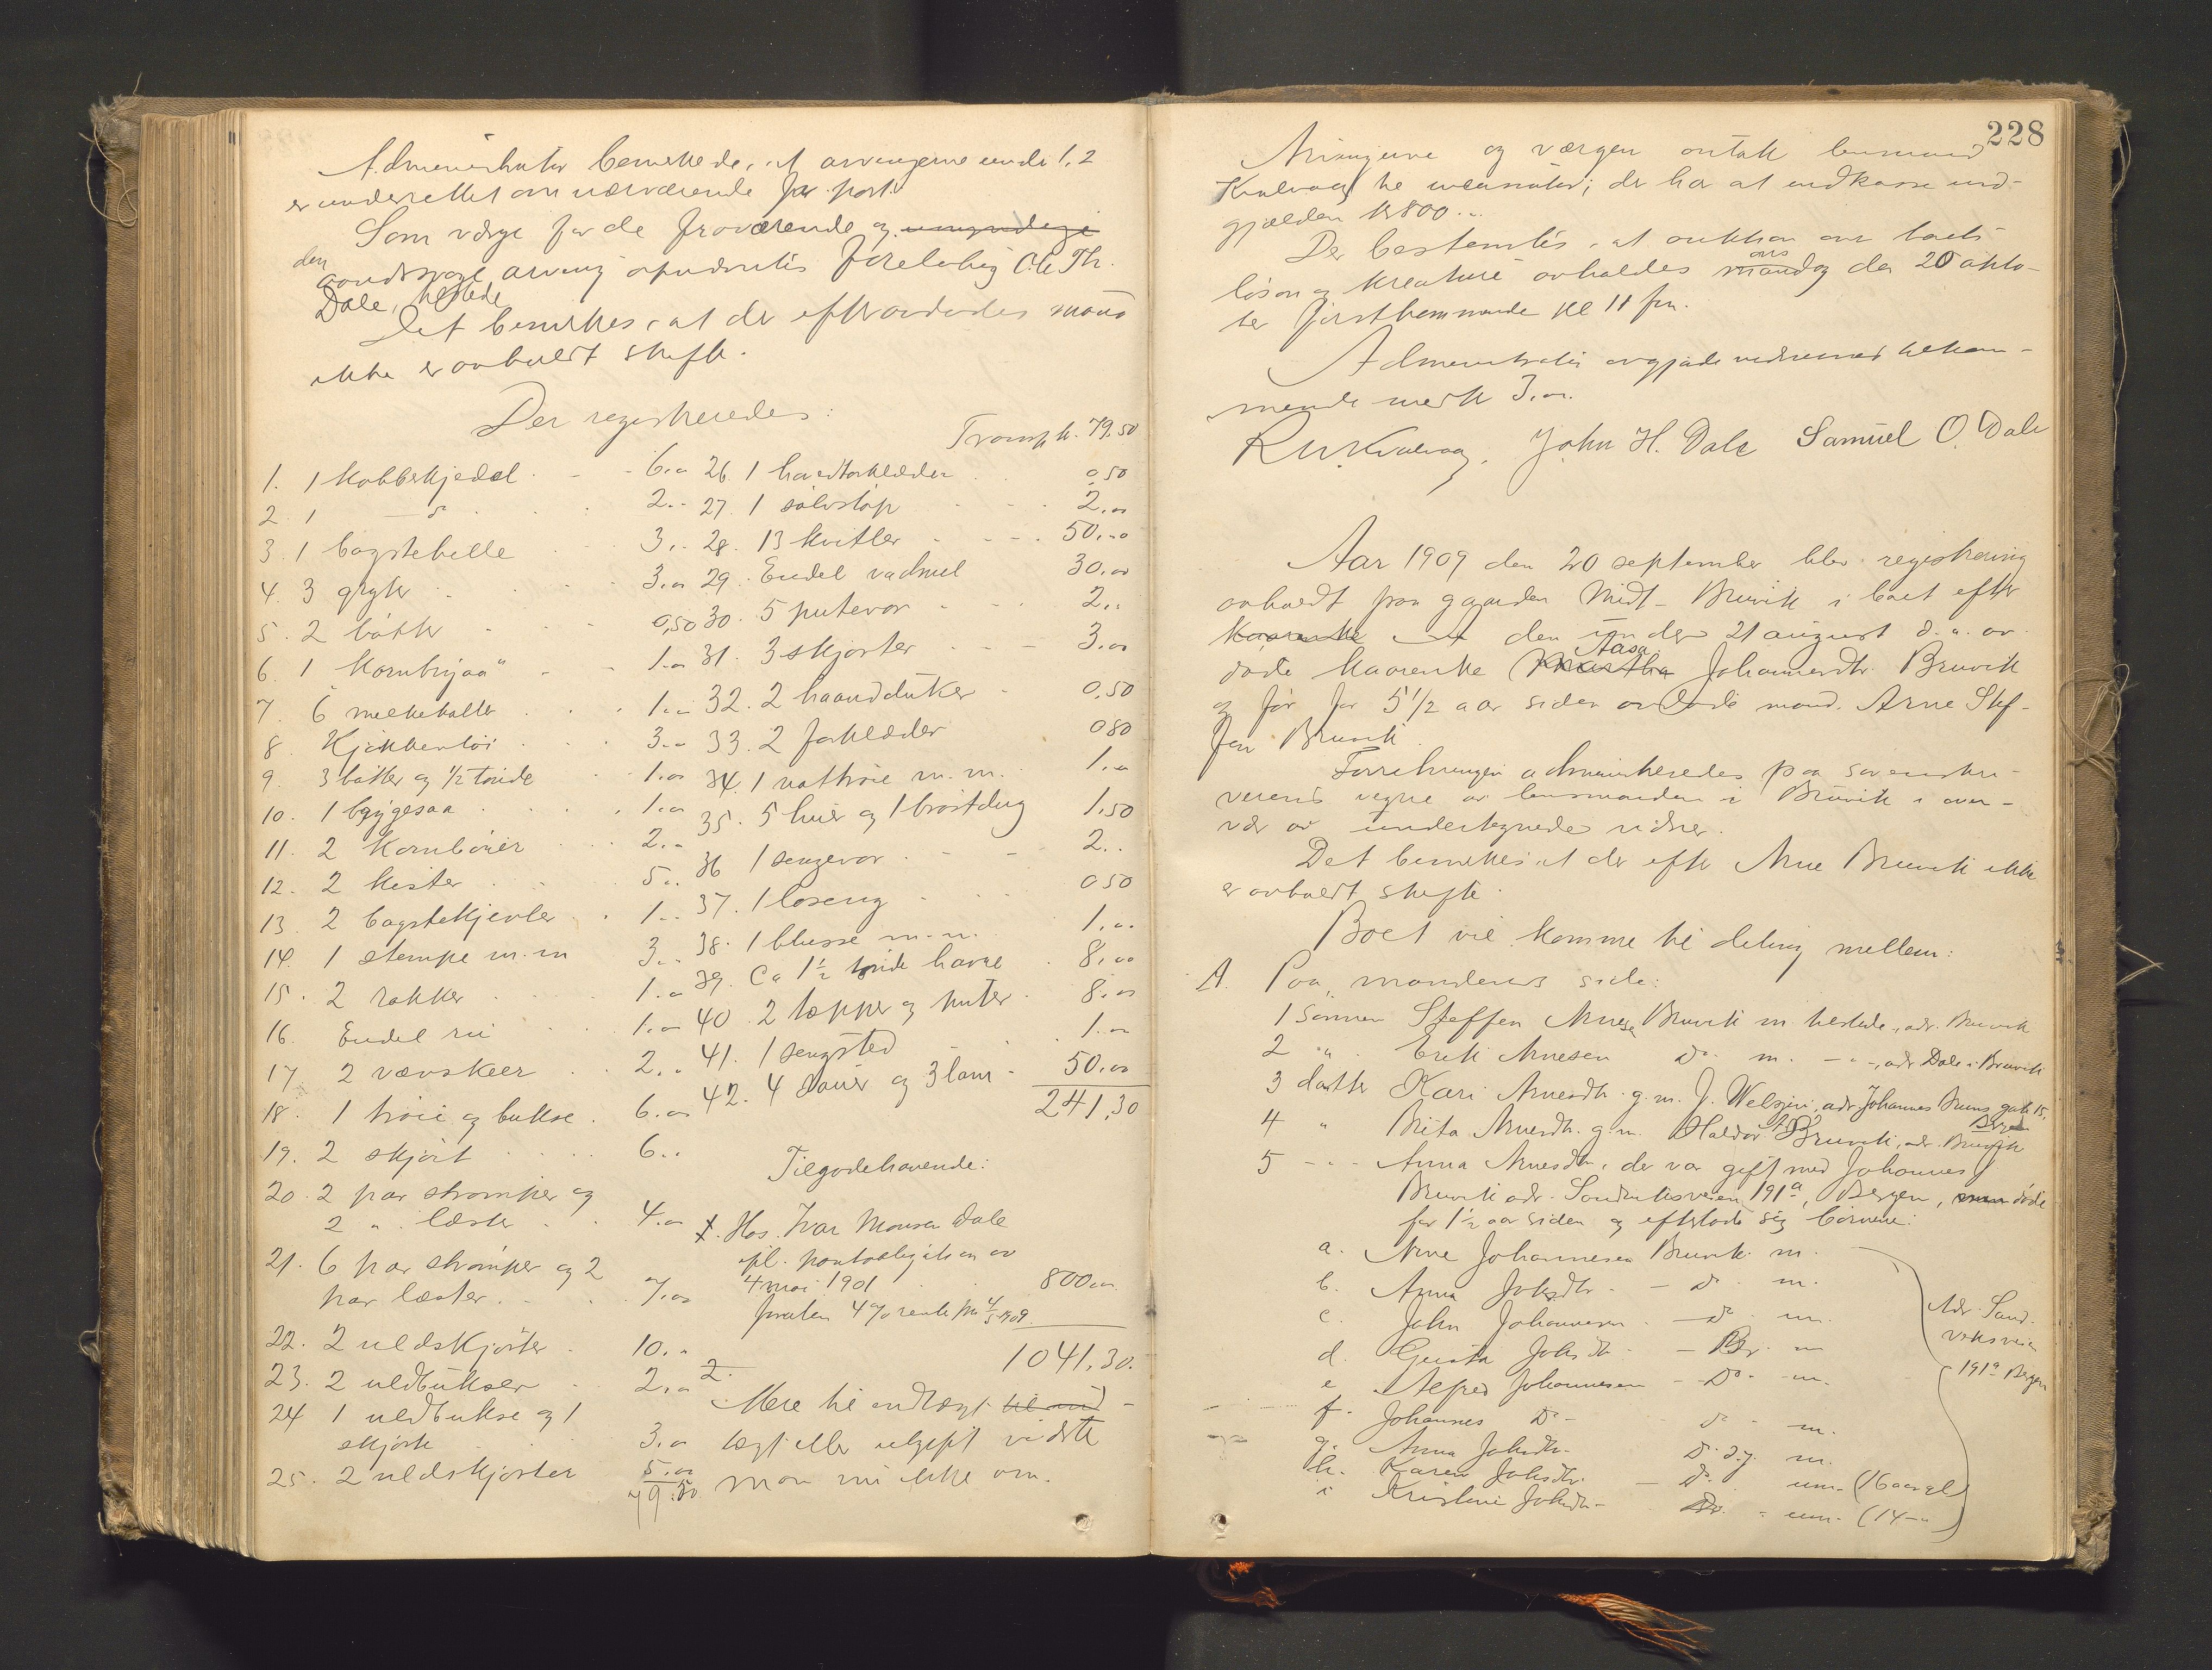 Administrator bemerkede, at arvingerne under 1, 2
er underrettet om nærværende for post.
Som værge for de fraværende og umyndige
den aandssvage arving opnævntes foreløbig Ole Th.
Dale, tilstede
Det bemerkes, at der efter avdødes mand
ikke er avholdt skifte.
Der registreredes:
Transp. kr. 79.50
1. 1 kobberkjedel - 6.00
2. 1 do 2.-
3. 1 bagstehelle 3.-
4. 3 gryter 3.00
5. 2 bøtter 0,50
6. 1 Kornbryaa 1.00
7. 6 melkekoller 1.00
8. Kjøkkentøi 3.00
9. 3 bøtter og 1/2 tønde 1.00
10. 1 bryggesaa 1.00
11. 2 Kornbører 2.00
12. 2 kister 5..
13. 2 bagstekjevler 1..
14. 1 stampe m.m 3..
15. 2 rokker 1.00
16. Endel 1.00
17. 2 vævskeer 2..
18. 1 trøie og bukse. 6.00
19. 2 skjørt 6..
20. 2 par strømper og
2 " læster 4.00
21. 6 par strømper og 2
par læster. 7.00
22. 2 uldskjorter 10.00
23. 2 uldbukser 2.00
24 1 uldbukse og 1
skjorte 3.00
25. 2 uldskjorter 5.00
79.50
26. 1 hovedtørklæder 0.50
27. 1 sølvstøp 2.00
28. 13 kvitler 50.00
29. Endel vadmel 30.00
30. 5 putevar 2..
31. 3 skjorter 3.00
32. 2 haandduker 0,50
33. 2 forklæder 080
34. 1 nattrøie m.m. 1.00
35. 5 huer og 1 brøstdug 1,50
36 1 sengevar 2..
37. 1 0 50
38. 1 bluse m.m. 1.00
39. Ca 1 1/2 tønde havre 8.00
40. 2 tæpper og puter 8.00
41. 1 sengsted 1.00
42. 4 sauer og 3 lam 50.00
241,30
Tilgodehavende:
1. Hos Ivar Monsen Dale
ifl. pantobligation av
4 mai 1901 800.00
foruten 4 % rente fra 4/5 1909.
1041,30.
2.
Mere til indtægt til ind-
tægt eller utgift vidste
man nu ikke om.
228
Arvingerne og værgen antok lensmand
Kvalvaag til inkassator; der har at indkasse ud-
gjælden kr 800...
Der bestemtes, at auktion over boets
løsøre og kreaturer avholdes onsdag den 20 okto-
ber førstkommende kl 11 fm.
Administrator avgjorde vidnerne tilkom-
mende med kr 3.00.
R. W. Kvalvaag. John H. Dale Samuel O. Dale
Aar 1909 den 20 september blev registrering
avholdt paa gaarden Midt-Bruvik i boet efter
Kaarenke den under 21 august d.a. av-
døde Kaarenke Martha Aasa Johannesdtr. Bruvik
og før for 5 1/2 aar siden avdøde mand. Arne Stef-
fen Bruvik.
Forretningen administreredes paa sorenskri-
verens vegne av lensmanden i Bruvik i over-
vær av undertegnede vidner.
Det bemerkes at der efter Arne Bruvik ikke
er avholdt skifte.
Boet vil komme til deling mellem:
A. Paa mandens side:
1 Sønnen Steffen Arnesen Bruvik m. tilstede, adr. Bruvik
2 " Erik Arnesen do m. - " -, adr Dale i Bruvik
3 datter Kari Arnesdtr. g.m. J. Welgin, adr Johannes Bruns gate 15,
Bergen
4 " Brita Arnesdtr. g.m. Haldor Bruvik, adr. Bruvik
5 - " - Anna Arnesdtr, der var gift med Johannes
Bruvik adr. Sandviksveien 191a, Bergen, døde
for 1 1/2 aar siden og efterlod sig børnene:
a. Arne Johannesen Bruvik m.
b. Anna Johsdtr. - do - m.
c. John Johannesen - do m.
d. Gusta Johsdtr - Br. m
e Alfred Johannesen - Do - m.
f. Johannes Do - do - m.
g. Anna Johsdtr. Do. 2 j. m.
h. Karen Johsdtr. - do. um. (16 aar gl
i Kristine Johsdtr - Do. - um. (14 - "
Adr. Sand-
viksveien
191a Bergen